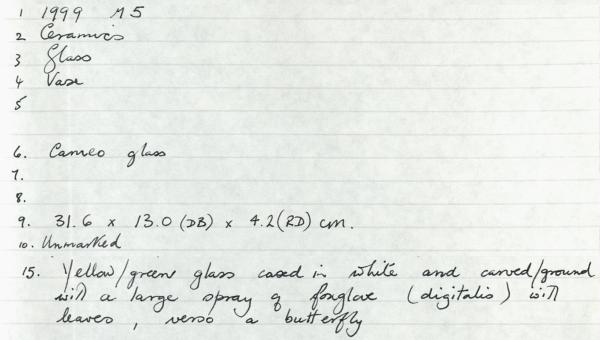 1 1999 M5
2 Ceramics
3 Glass
4 Vase
5
6. Cameo glass
7.
8.
9. 31.6 x 13.0 (DB) x 4.2 (RD) cm.
10. Unmarked
15. Yellow/green glass cased in white and carved/ground
with a large spray of foxglove (digitalis) with
leaves, verso a butterfly